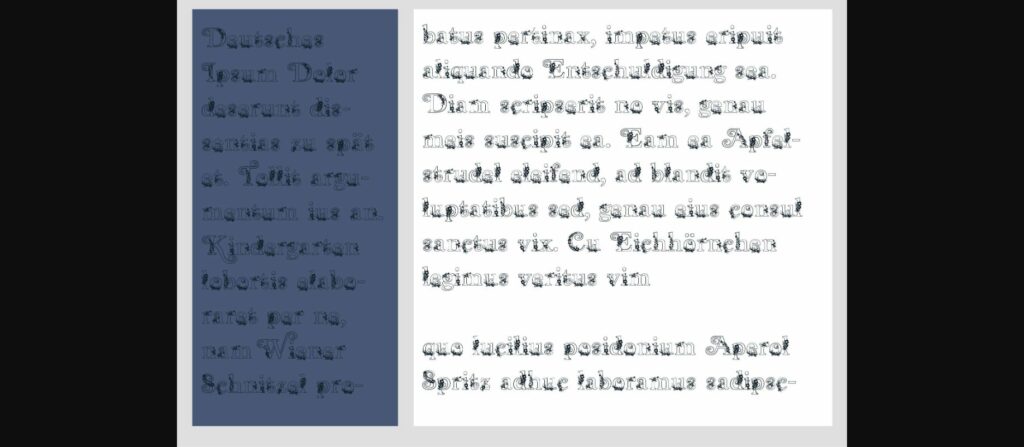 Deutsches
Ipsum Dolor
deserunt dis-
sentias zu spät
et. Tollit argu-
mentum ius an.
Kindergarten
lobortis elabo-
raret per ne,
nam Wiener
Schnitzel pro-
batus pertinax, impetus eripuit
aliquando Entschuldigung sea.
Diam scripserit no vis, genau
meis suscipit ea. Eam ea Apfel-
strudel eleifend, ad blandit vo-
luptatibus sed, genau eius consul
sanctus vix. Cu Eichhörnchen
legimus veritus vim
quo lucilius posidonium Aperol
Spritz adhuc laboramus sadipsc-